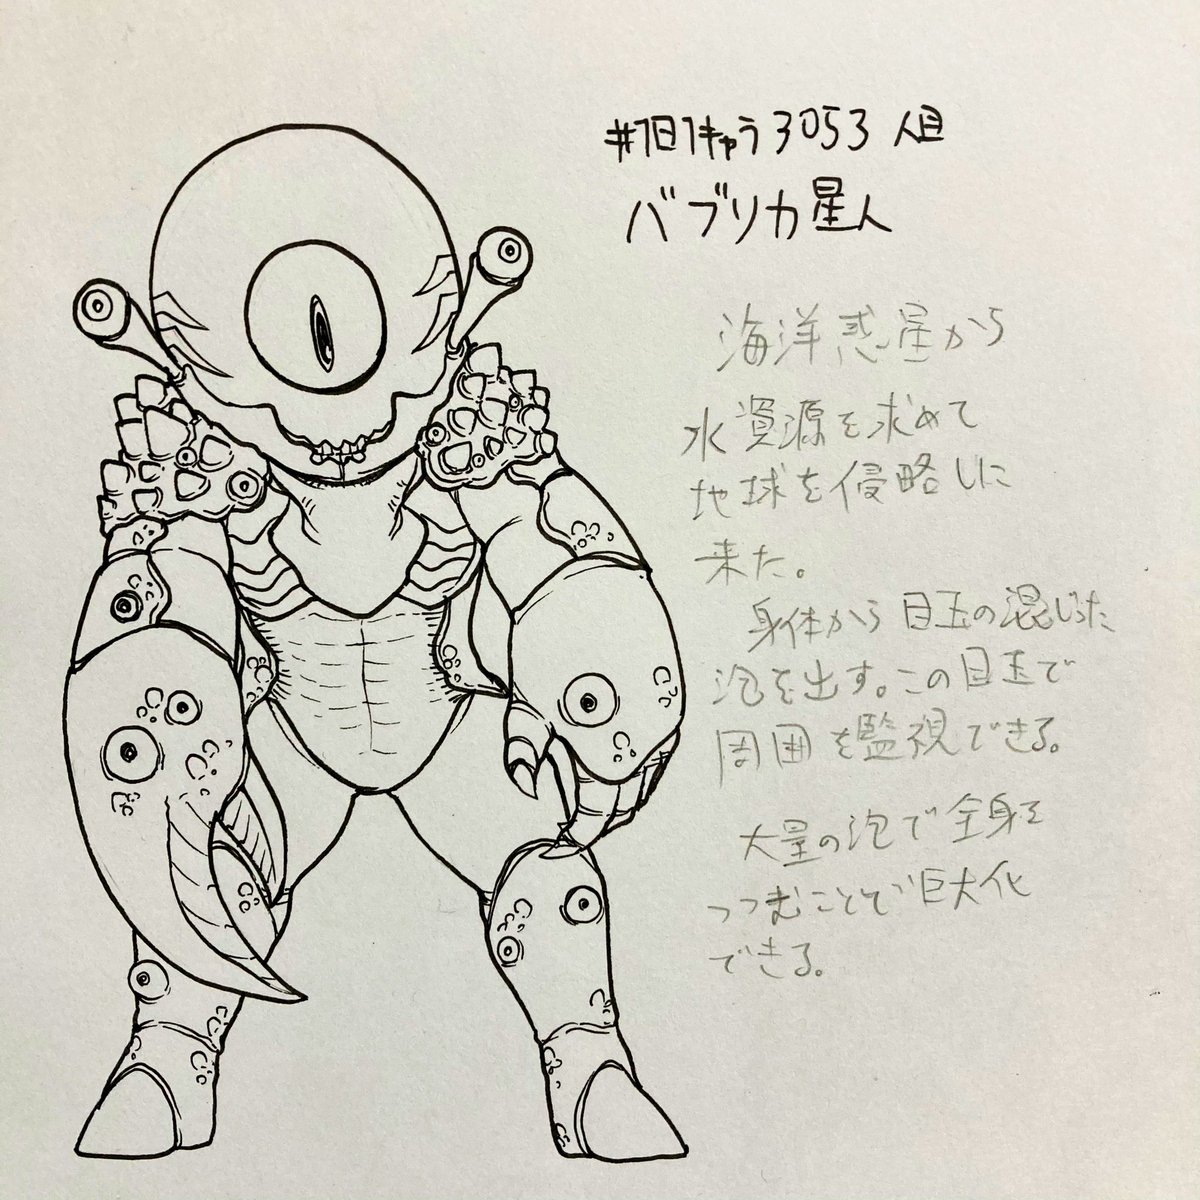 #1日1キャラ3053人目
バブリカ星人
海洋惑星から
水資源を求めて
地球を侵略しに
来た。
身体から目玉の混じった
泡を出す。この目玉で
周囲を監視できる。
大量の泡で全身を
つつむことで巨大化
できる。